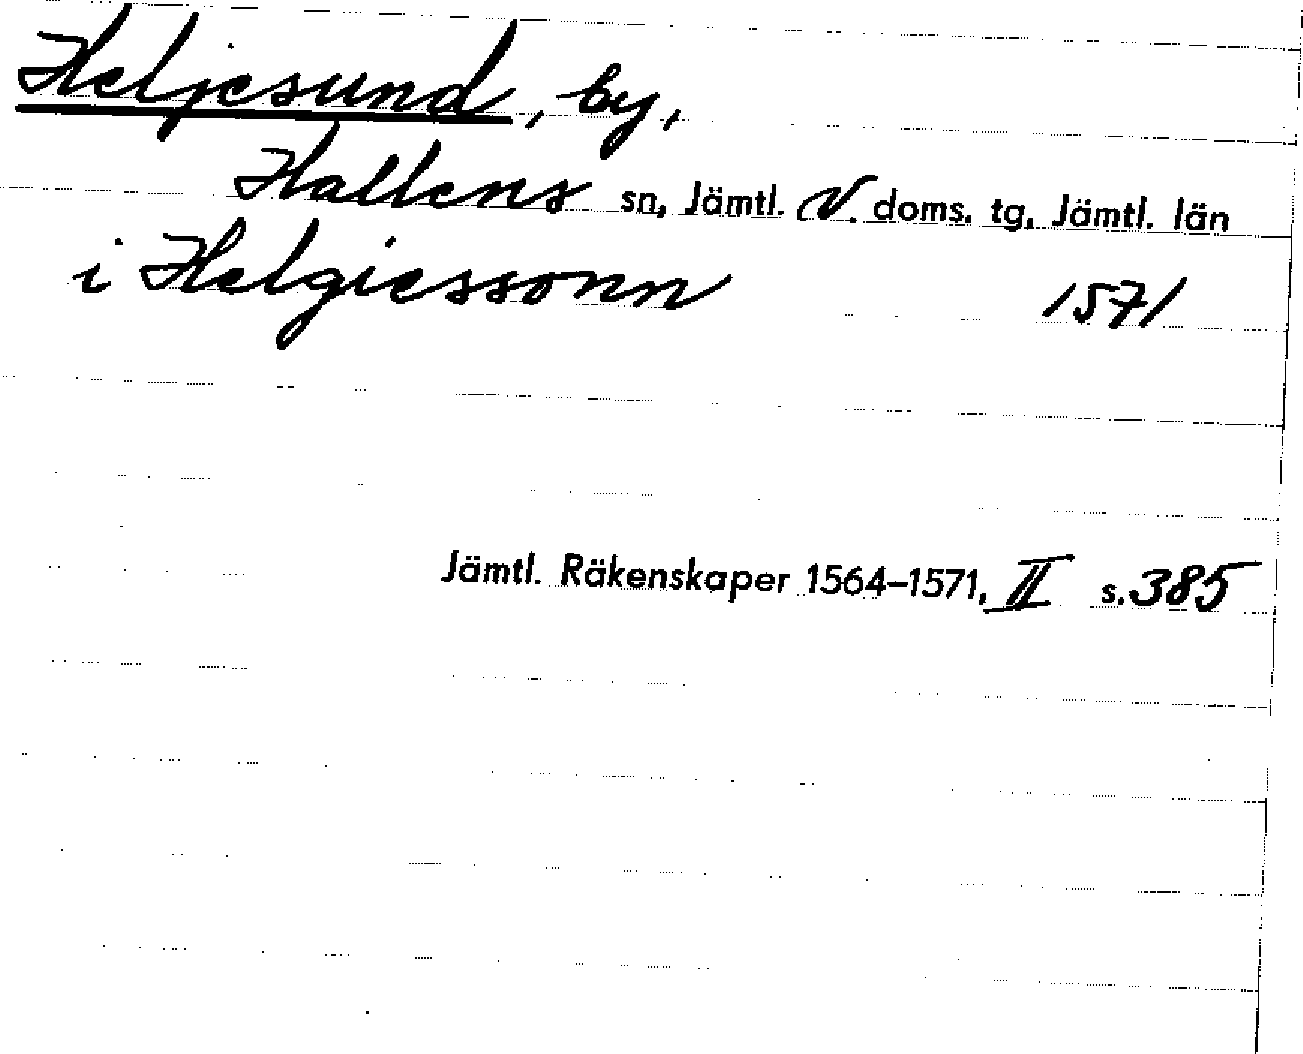 Heljesund, by,
Hallens sn, Jämtl. V. doms. tg, Jämtl. län
i Helgiessonn 1571
Jämtl. Räkenskaper 1564–1571, II s. 385